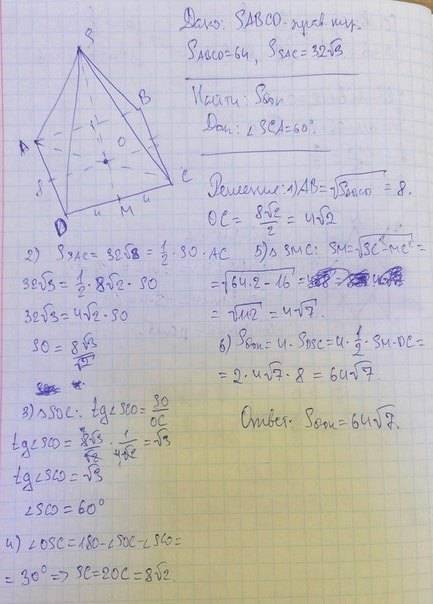 Дано: SABCD - прав. пир.
SABCD = 64, SSAC = 32√3
Найти: Sбок
Док: ∠SCA = 60°.
S
B
A
O
C
8
D
4
M
4
Решение: 1) AB = √SABCD = 8.
OC = 8√2/2 = 4√2
2) SSAC = 32√3 = 1/2 · SO · AC
32√3 = 1/2 · 8√2 · SO
32√3 = 4√2 · SO
SO = 8√3/√2
3) △SOC: tg∠SCO = SO/OC
tg∠SCO = 8√3/√2 · 1/4√2 = √3
tg∠SCO = √3
∠SCO = 60°
4) ∠OSC = 180 - ∠SOC - ∠SCO =
= 30° => SC = 2OC = 8√2.
5) △SMC: SM = √SC² - MC² =
= √64·2 - 16 =
= √112 = 4√7.
6) Sбок = 4 · SDSC = 4 · 1/2 · SM · DC =
= 2 · 4√7 · 8 = 64√7.
Ответ: Sбок = 64√7.